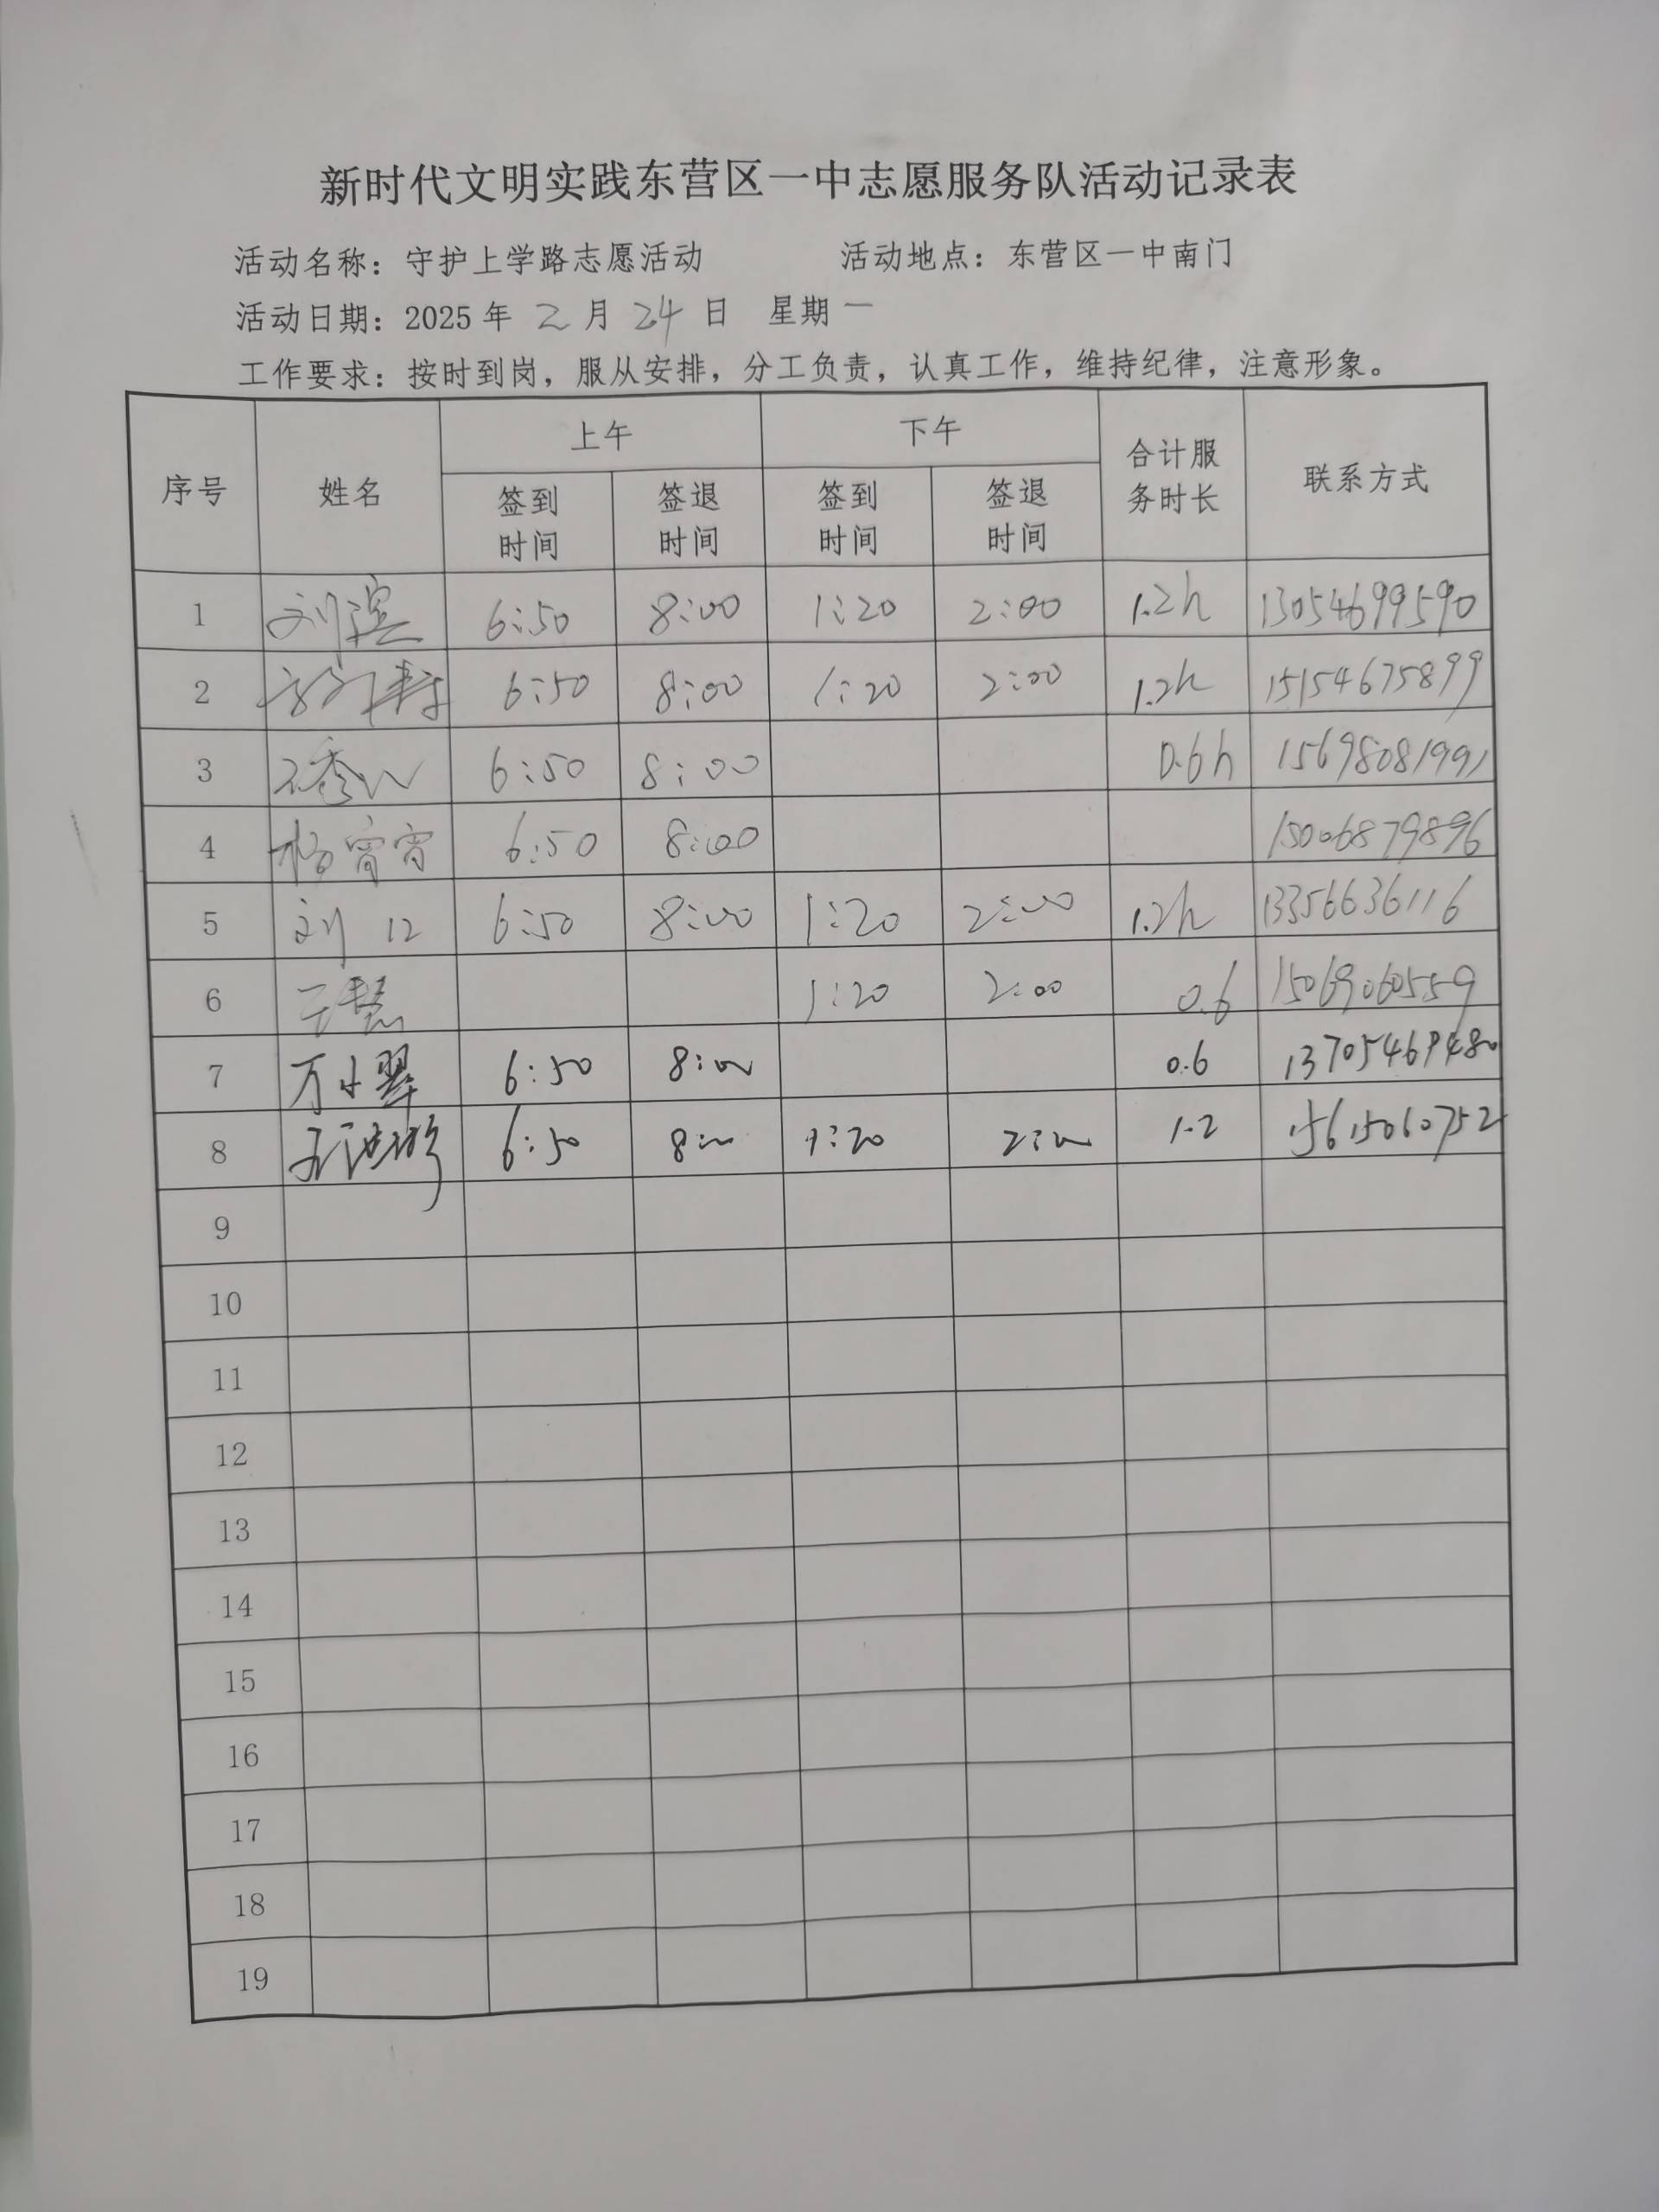 新时代文明实践东营区一中志愿服务队活动记录表
活动名称：守护上学路志愿活动 活动地点：东营区一中南门
活动日期：2025 年 2 月 24 日 星期 一
工作要求：按时到岗，服从安排，分工负责，认真工作，维持纪律，注意形象。
序号 姓名 上午 下午 合计服务时长 联系方式
签到时间 签退时间 签到时间 签退时间
1 刘滨 6:50 8:00 1:20 2:00 1.2h 13054699590
2 6:50 8:00 1:20 2:00 1.2h 15154675899
3 6:50 8:00 0.6h 15698081991
4 杨宵宵 6:50 8:00 15006879896
5 刘 6:50 8:00 1:20 2:00 1.2h 13356636116
6 1:20 2:00 0.6 15069060559
7 万小翠 6:50 8:00 0.6 13705469480
8 6:50 8:00 1:20 2:00 1.2 15615060752
9
10
11
12
13
14
15
16
17
18
19